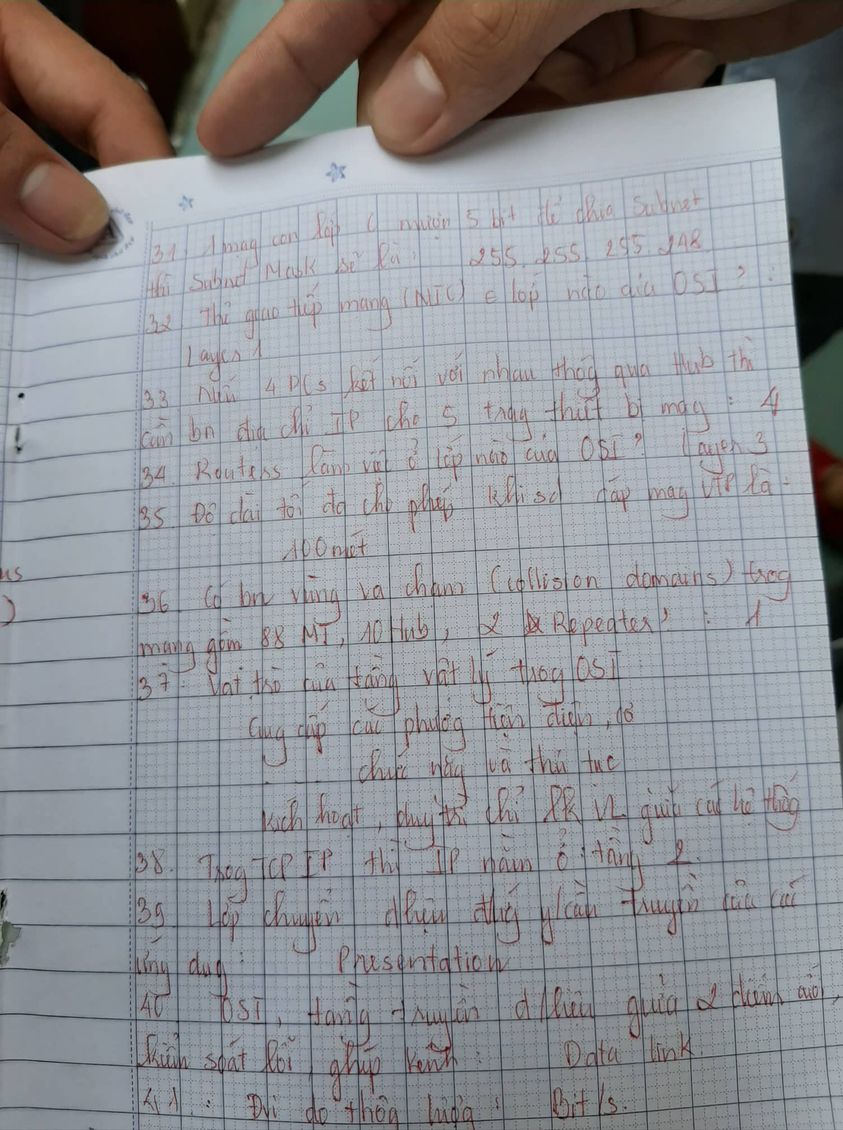 31. 1 mạg con lớp C mượn 5 bit để chia Subnet
thì Subnet Mask sẽ là: 255. 255. 255. 248.
32 Thẻ giao tiếp mạng (NIC) ∈ lớp nào của OSI? :
Layer 1
33 Nếu 4 PCs kết nối với nhau thôg qua Hub thì
cần bn địa chỉ IP cho 5 trag thiết bị mạg: 4
34. Routerss làm việc ở lớp nào của OSI? Layer 3
35 Độ dài tối đa cho phép khi sd cáp mạg UTP là:
100 mét
us
36 Có bn vùng va chạm (collision domains) trog
)
mạng gồm 88 MT, 10 Hub, 2 Repeater? : 1
37. Vai trò của tầng vật lý trog OSI
Cug cấp các phươg tiện điện, cơ
chức năg và thủ tục
kích hoạt, duy trì giữa các hệ thốg
38. Trog TCP IP thì IP nằm ở: tầng 2.
39. Lớp chuyển dliệu thàg y/cầu truyền của các
ứng dụg: Presentation
40 OSI, tầng truyền d/liệu giữa 2 điểm cuối,
kiểm soát lỗi, ghép kênh: Data link.
41. : Đvi đo thôg lượg: Bit/s.